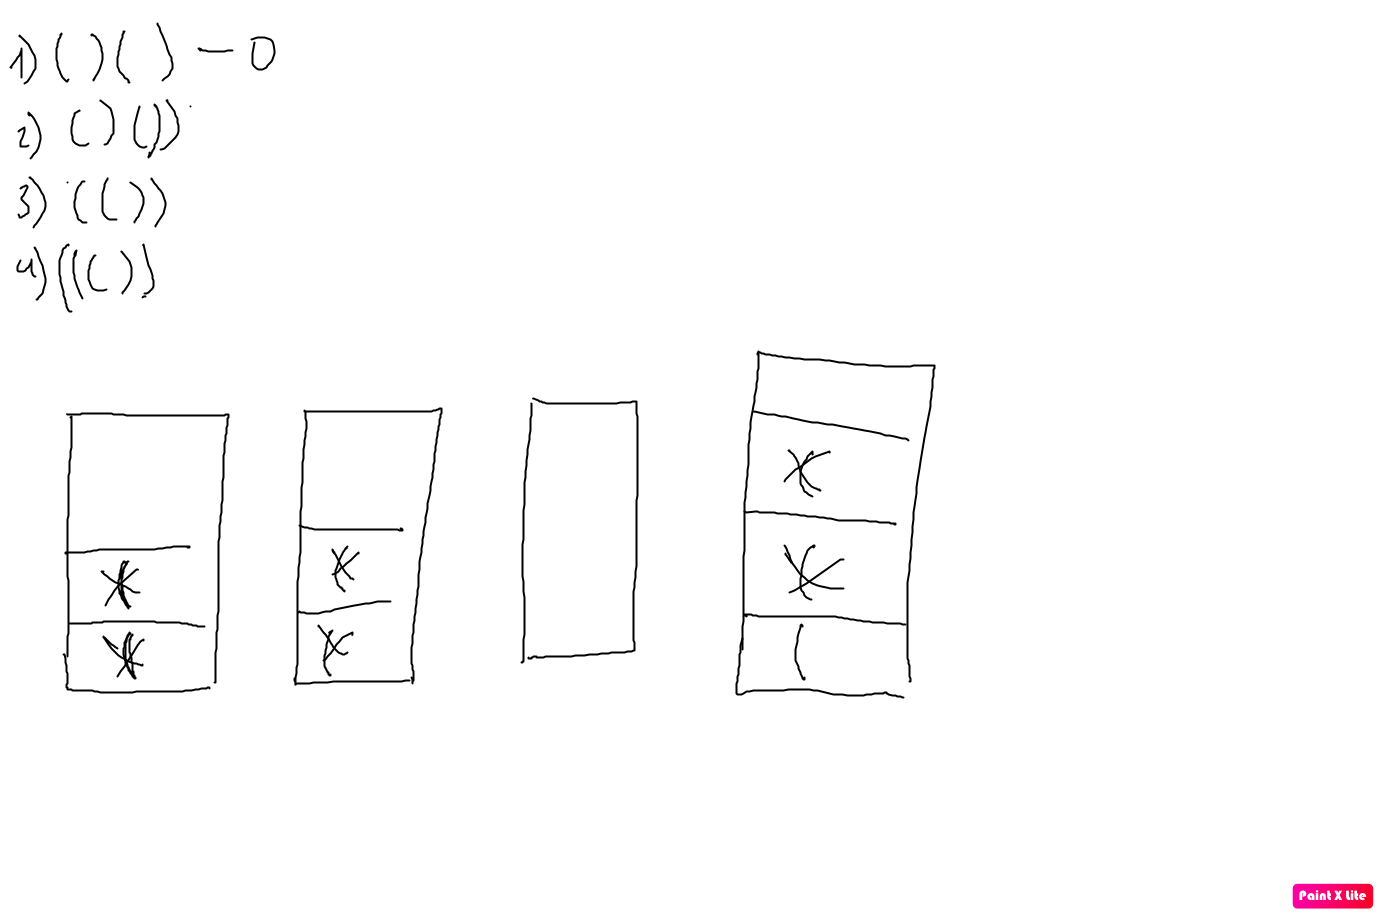 1) ( ) ( ) — 0
2) ( ) ( ) )
3) ( ( ) )
4) ( ( ( ) )
(
Paint X Lite